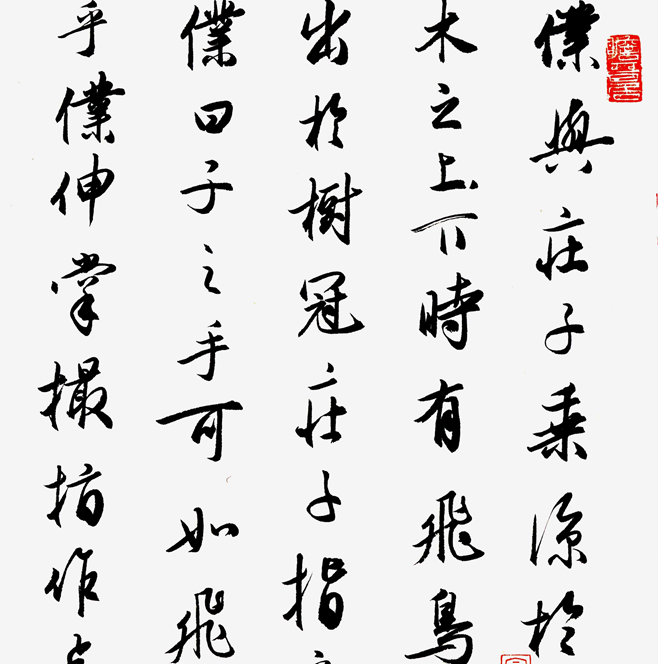 僕與莊子乘涼於
木之上下時有飛鳥
出於樹冠莊子指
僕曰子之手可如飛
乎僕伸掌撮指作